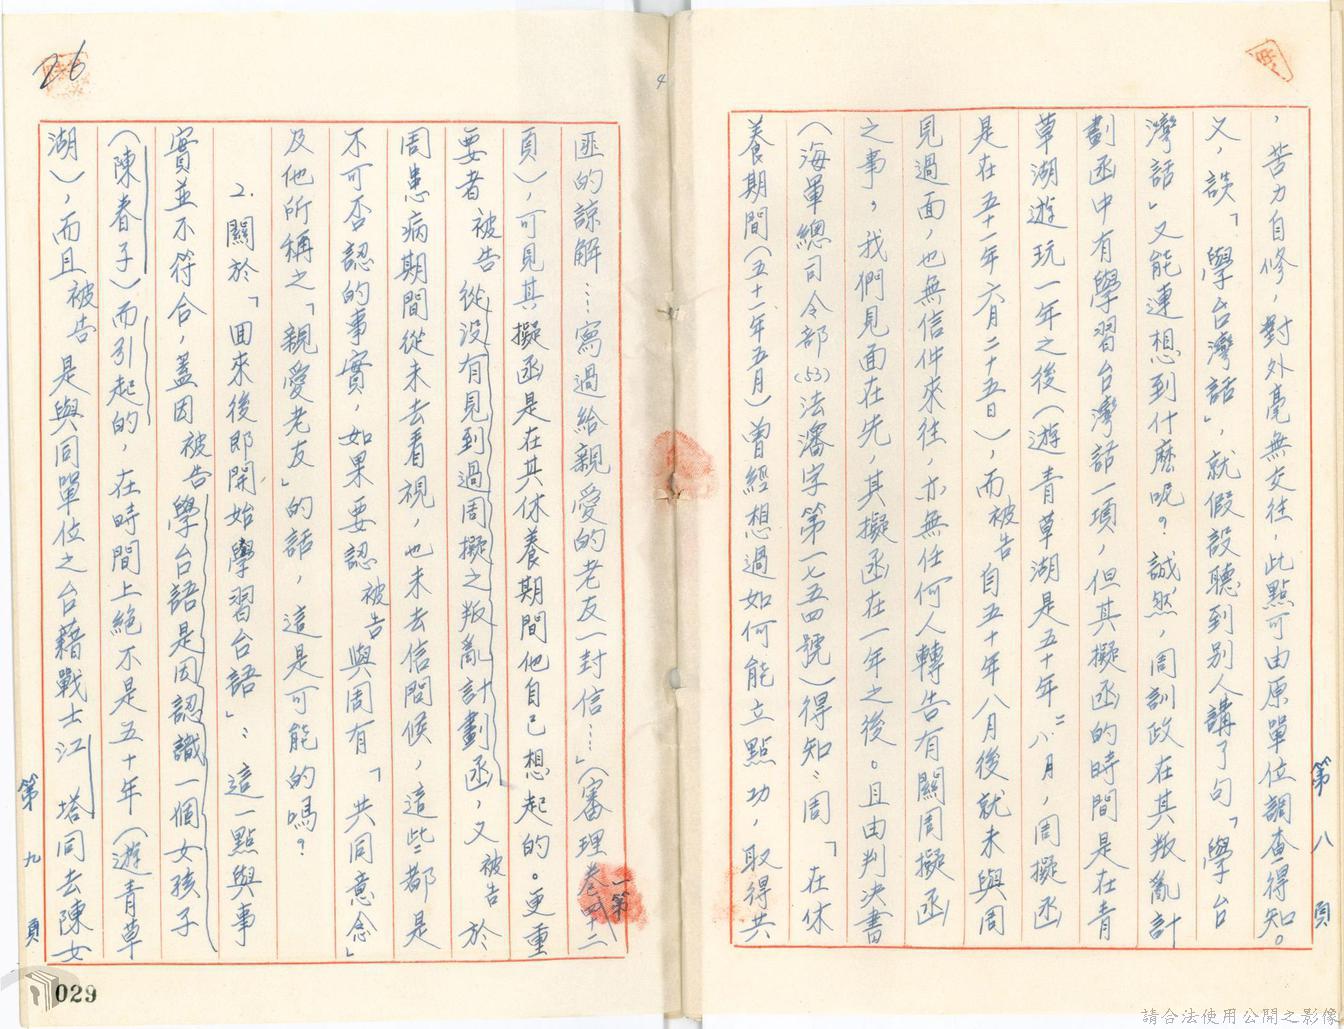 ，苦力自修，對外毫無交往，此點可由原單位調查得知。
又，談「學台灣話」，就假設聽到別人講了句「學台
灣話」又能連想到什麼呢？誠然，周訓政在其叛亂計
劃函中有學習台灣話一項，但其擬函的時間是在青
草湖遊玩一年之後（遊青草湖是五十年二、八月，周擬函
是在五十一年六月二十五日），而被告自五十年八月後就未與周
見過面，也無信件來往，亦無任何人轉告有關周擬函
之事，我們見面在先，其擬函在一年之後。且由判決書
（海軍總司令部(53)法瀋字第一七五四號）得知：周「在休
養期間（五十一年五月）曾經想過如何能立點功，取得共
第八頁
匪的諒解…寫過給親愛的老友一封信…」（審理卷四十二
第一
頁），可見其擬函是在其休養期間他自己想起的。更重
要者被告從沒有見到過周擬之叛亂計劃函，又被告於
周患病期間從未去看視，也未去信問候，這些都是
不可否認的事實，如果要認被告與周有「共同意念」
及他所稱之「親愛老友」的話，這是可能的嗎？
2.關於「回來後即開始學習台語」：這一點與事
實並不符合，蓋因被告學台語是因認識一個女孩子
（陳春子）而引起的，在時間上絕不是五十年（遊青草
湖），而且被告是與同單位之台籍戰士江塔同去陳女
第九頁
26
4
029
請合法使用公開之影像